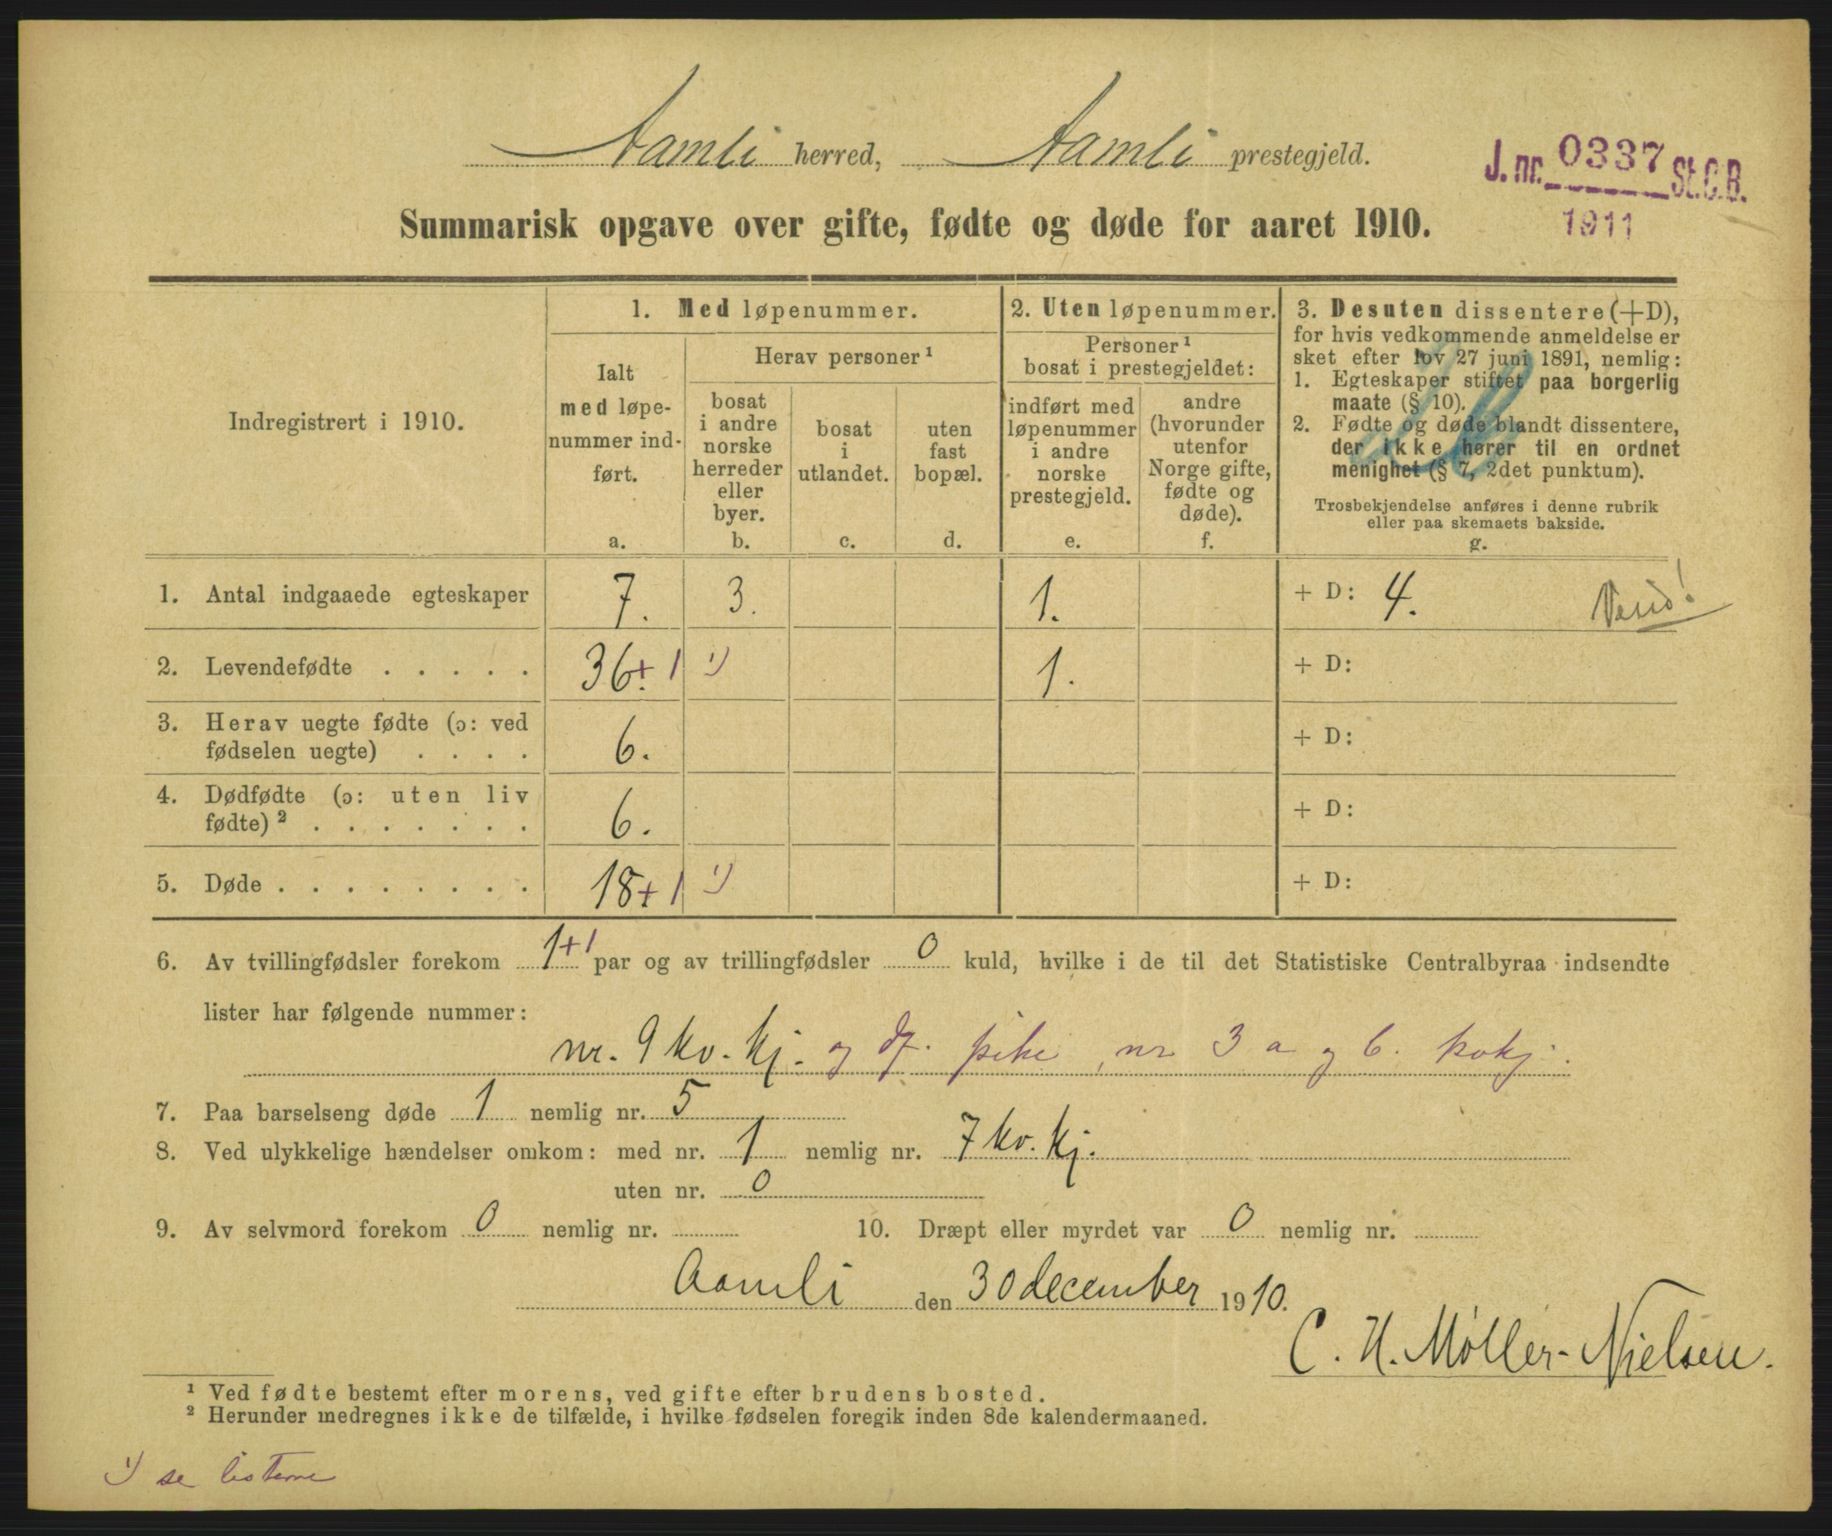 Aamli herred, Aamli prestegjeld.
J. nr. 0337 St.C.B.
1911
Summarisk opgave over gifte, fødte og døde for aaret 1910.
Indregistrert i 1910.
1. Med løpenummer.
Ialt
med løpe-
nummer ind-
ført.
a.
Herav personer ¹
bosat
i andre
norske
herreder
eller
byer.
b.
bosat
i
utlandet.
c.
uten
fast
bopæl.
d.
2. Uten løpenummer.
Personer ¹
bosat i prestegjeldet:
indført med
løpenummer
i andre
norske
prestegjeld.
e.
andre
(hvorunder
utenfor
Norge gifte,
fødte og
døde).
f.
3. Desuten dissentere (+D),
for hvis vedkommende anmeldelse er
sket efter lov 27 juni 1891, nemlig:
1. Egteskaper stiftet paa borgerlig
maate (§ 10).
2. Fødte og døde blandt dissentere,
der ikke hører til en ordnet
menighet (§ 7, 2det punktum).
Trosbekjendelse anføres i denne rubrik
eller paa skemaets bakside.
g.
1. Antal indgaaede egteskaper 7. 3. 1. + D: 4.
2. Levendefødte . . . . . 36. + 1 ¹) 1. + D:
3. Herav uegte fødte (ɔ: ved
fødselen uegte) . . . . 6. + D:
4. Dødfødte (ɔ: uten liv
fødte) ² . . . . . . . 6. + D:
5. Døde . . . . . . . . 18 + 1 ¹) + D:
6. Av tvillingfødsler forekom 1 + 1 par og av trillingfødsler 0 kuld, hvilke i de til det Statistiske Centralbyraa indsendte
lister har følgende nummer:
nr. 9 kv. kj. og df. pike, nr 3 a og 6. kvkj.
7. Paa barselseng døde 1 nemlig nr. 5
8. Ved ulykkelige hændelser omkom: med nr. 1 nemlig nr. 7 kv. kj.
uten nr. 0
9. Av selvmord forekom 0 nemlig nr.
10. Dræpt eller myrdet var 0 nemlig nr.
Aamli den 30 december 1910.
C. H. Møller-Nielsen.
¹ Ved fødte bestemt efter morens, ved gifte efter brudens bosted.
² Herunder medregnes ikke de tilfælde, i hvilke fødselen foregik inden 8de kalendermaaned.
¹) se listerne